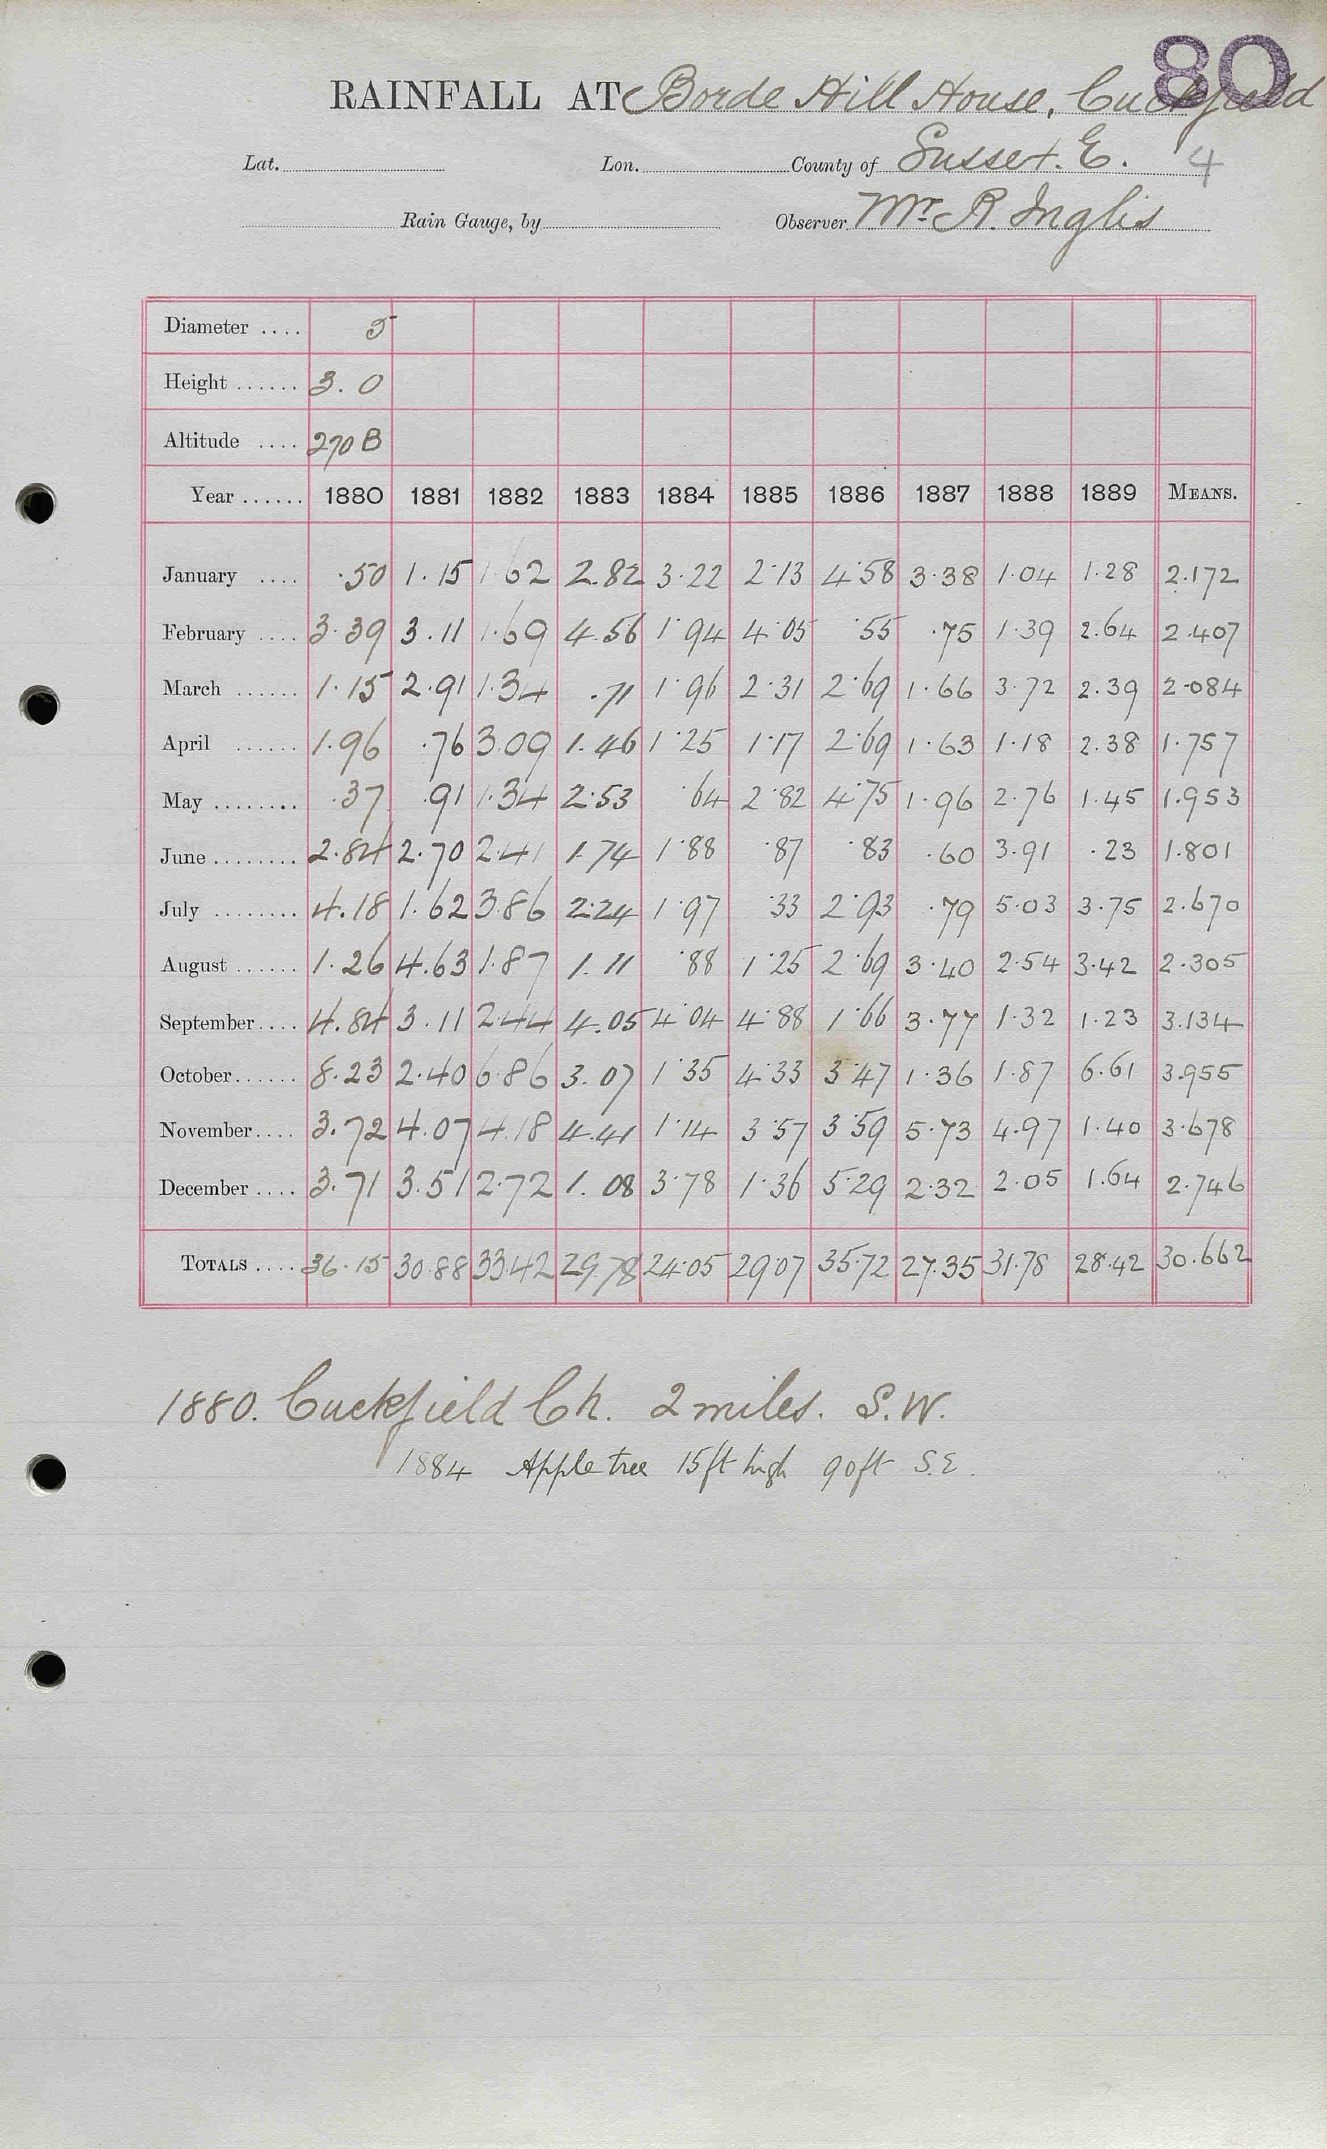 80
RAINFALL AT Borde Hill House, Cuckfield
Lat. Lon. County of Sussex. E. 4
Rain Gauge, by Observer Mr. R. Inglis
Diameter .... 5
Height ...... 3.0
Altitude .... 270 B
Year ...... 1880 1881 1882 1883 1884 1885 1886 1887 1888 1889 MEANS.
January .... .50 1.15 1.62 2.82 3.22 2.13 4.58 3.38 1.04 1.28 2.172
February .... 3.39 3.11 1.69 4.56 1.94 4.05 .55 .75 1.39 2.64 2.407
March ...... 1.15 2.91 1.34 .71 1.96 2.31 2.69 1.66 3.72 2.39 2.084
April ...... 1.96 .76 3.09 1.46 1.25 1.17 2.69 1.63 1.18 2.38 1.757
May ........ .37 .91 1.34 2.53 .64 2.82 4.75 1.96 2.76 1.45 1.953
June ........ 2.84 2.70 2.41 1.74 1.88 .87 .83 .60 3.91 .23 1.801
July ........ 4.18 1.62 3.86 2.24 1.97 .33 2.93 .79 5.03 3.75 2.670
August ...... 1.26 4.63 1.87 1.11 .88 1.25 2.69 3.40 2.54 3.42 2.305
September .... 4.84 3.11 2.44 4.05 4.04 4.88 1.66 3.77 1.32 1.23 3.134
October ...... 8.23 2.40 6.86 3.07 1.35 4.33 3.47 1.36 1.87 6.61 3.955
November .... 3.72 4.07 4.18 4.41 1.14 3.57 3.59 5.73 4.97 1.40 3.678
December .... 3.71 3.51 2.72 1.08 3.78 1.36 5.29 2.32 2.05 1.64 2.746
TOTALS .... 36.15 30.88 33.42 29.78 24.05 29.07 35.72 27.35 31.78 28.42 30.662
1880. Cuckfield Ch. 2 miles. S.W.
1884 Apple tree 15ft high 90ft S.E.